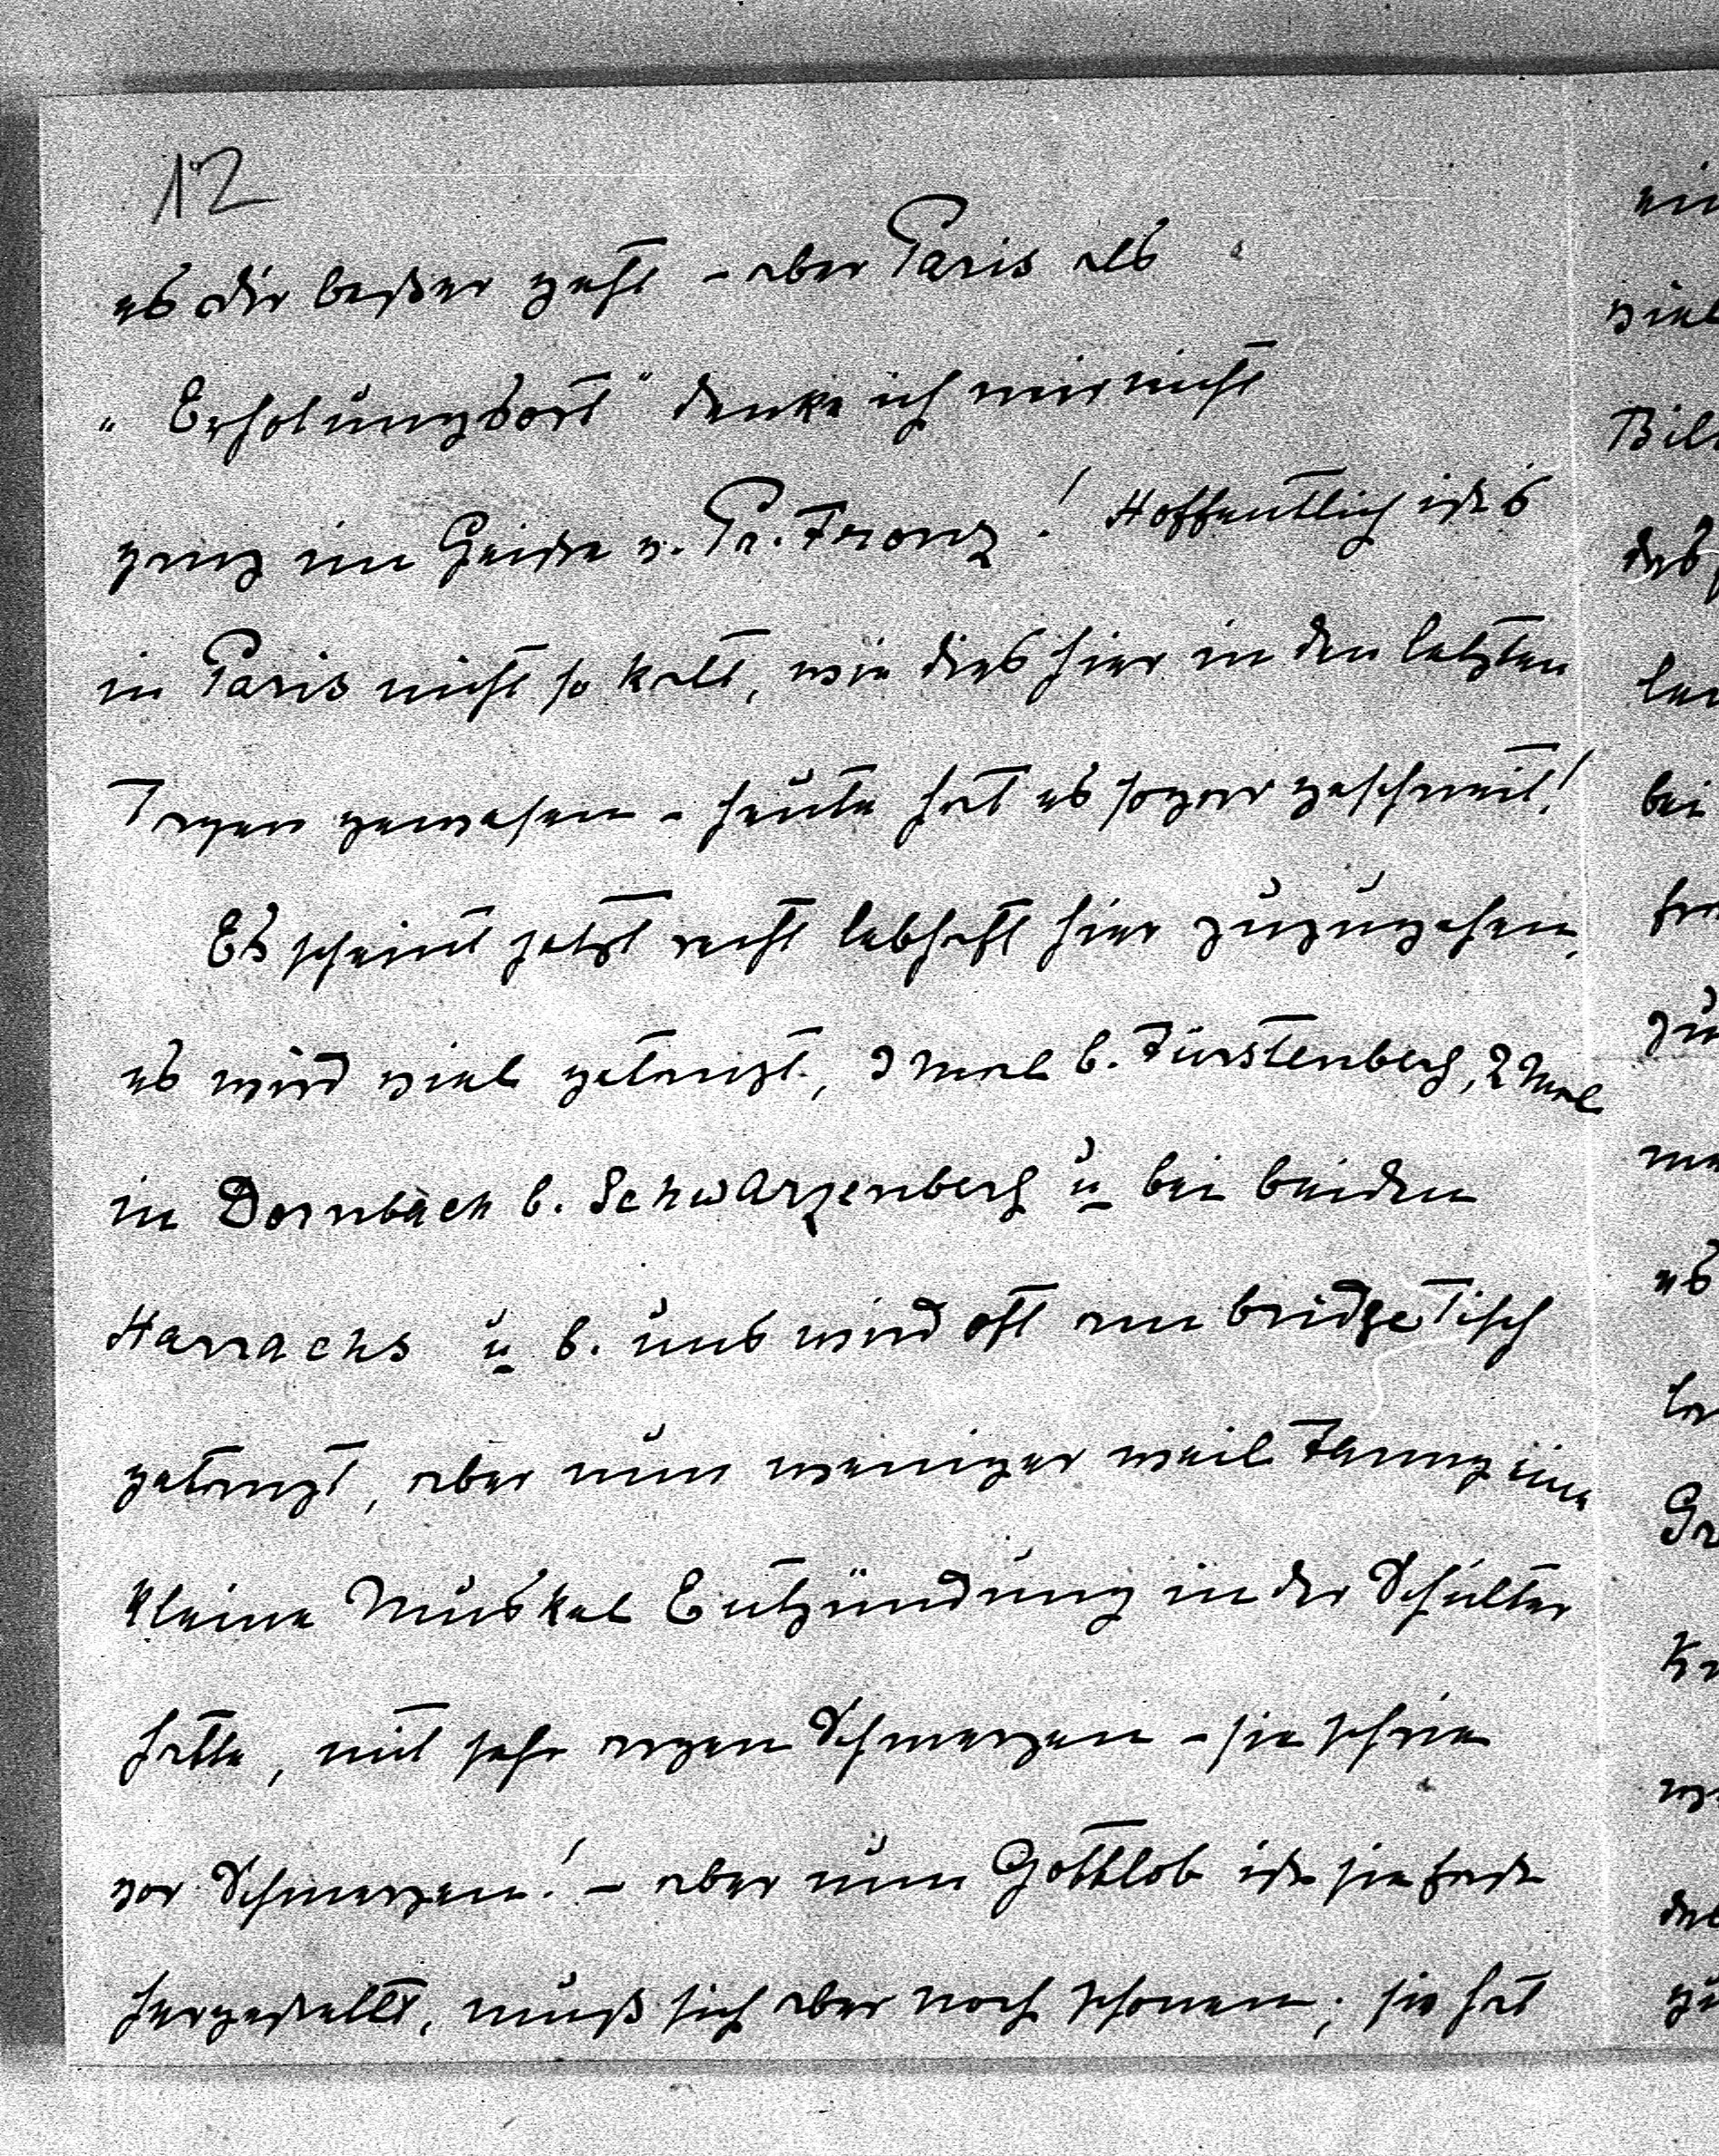 12
es dir besser geht - aber Paris als
"Erholungsort" denke ich mir nicht
ganz im Geiste v. Pr. Franz! Hoffentlich ist's
in Paris nicht so kalt, wie dies hier in den letzten
Tagen gewesen - heute hat es sogar geschneit!
Es scheint jetzt recht lebhaft hier zuzugehen,
es wird viel getanzt, 3 Mal b. Fürstenberg, 2 Mal
in Dornbach b. Schwarzenberg u bei beiden
Harrachs u b. uns wird oft am bridge Tisch
getanzt, aber nun weniger weil Fanny eine
kleine Muskel Entzündung in der Schulter
hatte, mit sehr argen Schmerzen - sie schrie
vor Schmerzen! - aber nun Gottlob ist sie fast
hergestellt, muß sich aber noch schonen; sie hat